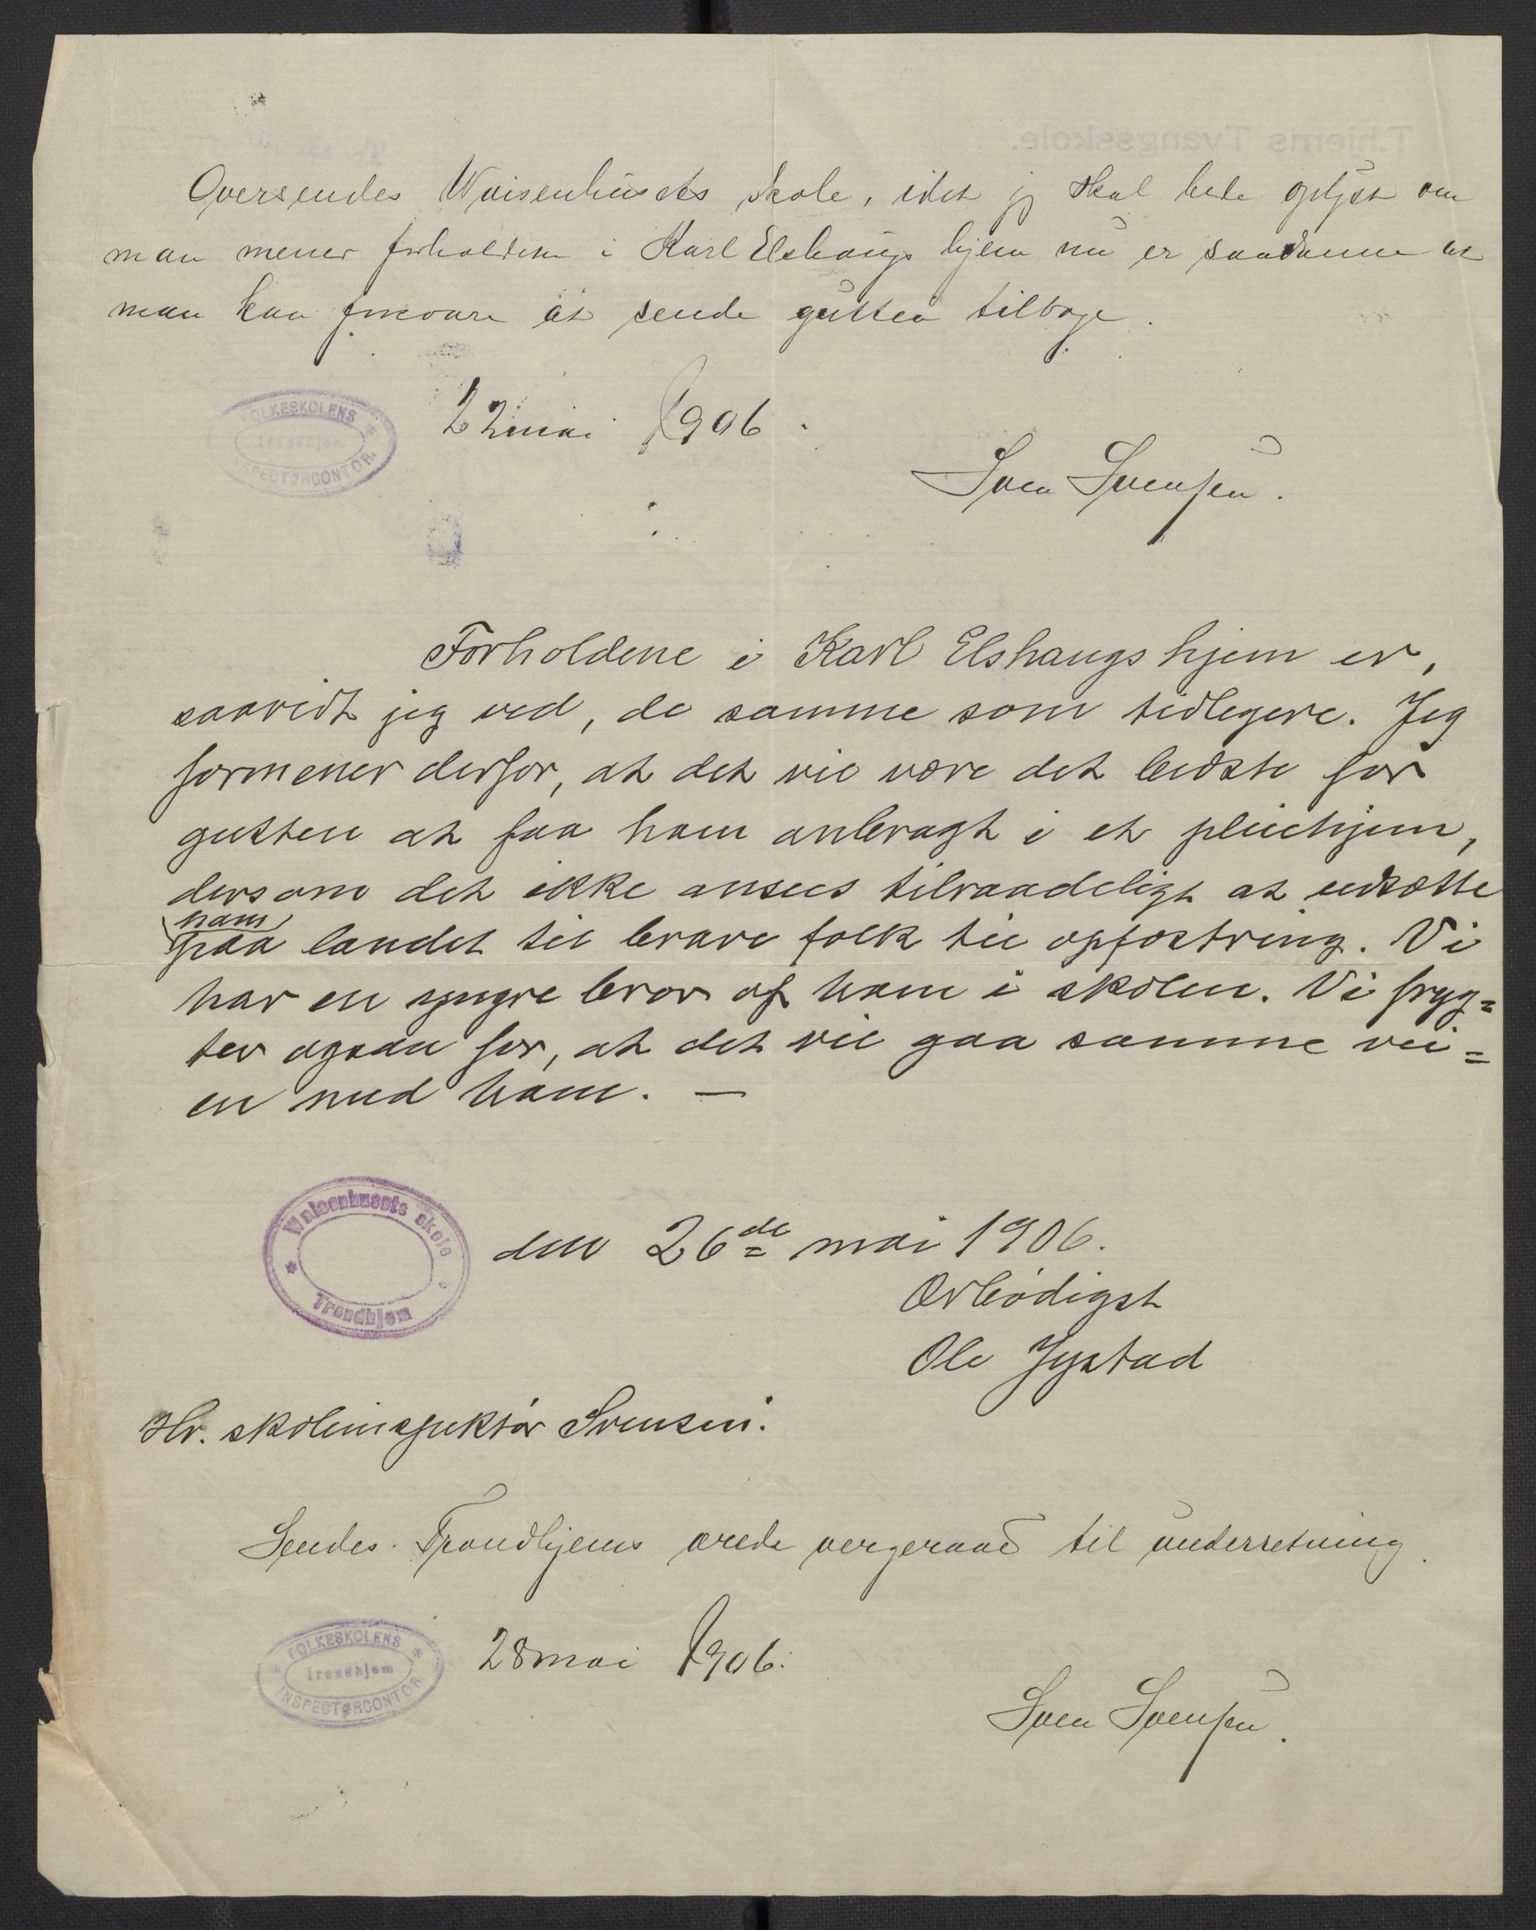 Oversendes Waisenhusets skole, idet jeg skal bede oplyst om
man mener forholdene i Karl Elshaugs hjem nu er saadanne at
man kan forsvare at sende gutten tilbage.
FOLKESKOLENS
Trondhjem
INSPECTØRCONTOR
22 mai 1906.
Sven Svensen.
Forholdene i Karl Elshaugs hjem er,
saavidt jeg ved, de samme som tidligere. Jeg
formener derfor, at det vil være det bedste for
gutten at faa ham anbragt i et pleiehjem,
dersom det ikke ansees tilraadeligt at udsætte
ham
paa landet til brave folk til opfostring. Vi
har en yngre bror af ham i skolen. Vi fryg=
ter ogsaa for, at det vil gaa samme vei=
en med ham. —
Waisenhusets skole
Trondhjem
den 26de mai 1906.
Ærbødigst
Ole Jystad
Hr. skoleinspektør Svensen.
Sendes Trondhjems ærede vergeraad til underretning.
FOLKESKOLENS
Trondhjem
INSPECTØRCONTOR
28 mai 1906.
Sven Svensen.
T.hjems Tvangsskole.